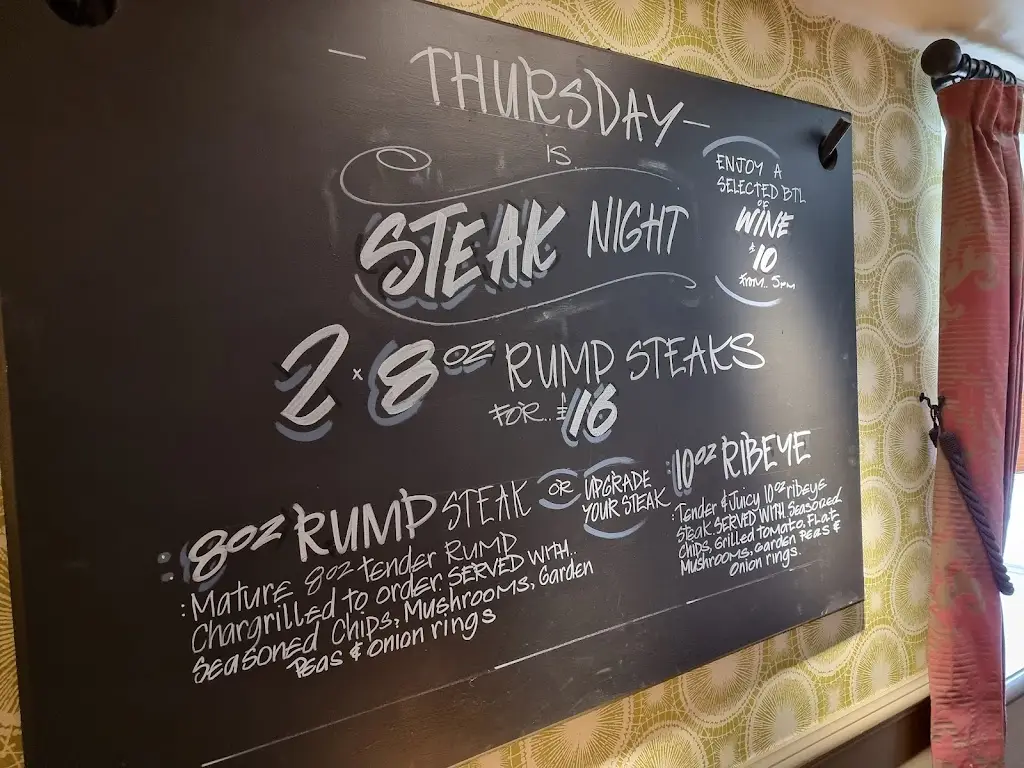 - THURSDAY -
IS
STEAK NIGHT
ENJOY A
SELECTED BTL
OF
WINE
£10
FROM.. 5pm
2 x 8oz RUMP STEAKS
FOR.. £16
: 8oz RUMP STEAK
: Mature 8oz tender RUMP
Chargrilled to order. SERVED WITH..
Seasoned Chips, Mushrooms, Garden
Peas & Onion rings
OR
UPGRADE
YOUR STEAK
: 10oz RIBEYE
: Tender & Juicy 10oz ribeye
Steak SERVED WITH Seasoned
Chips, Grilled tomato, Flat
Mushrooms, Garden Peas &
Onion rings.